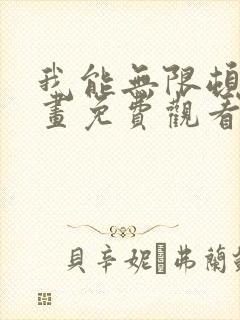 我能無限頓
畫免費觀看
貝辛妮 弗蘭